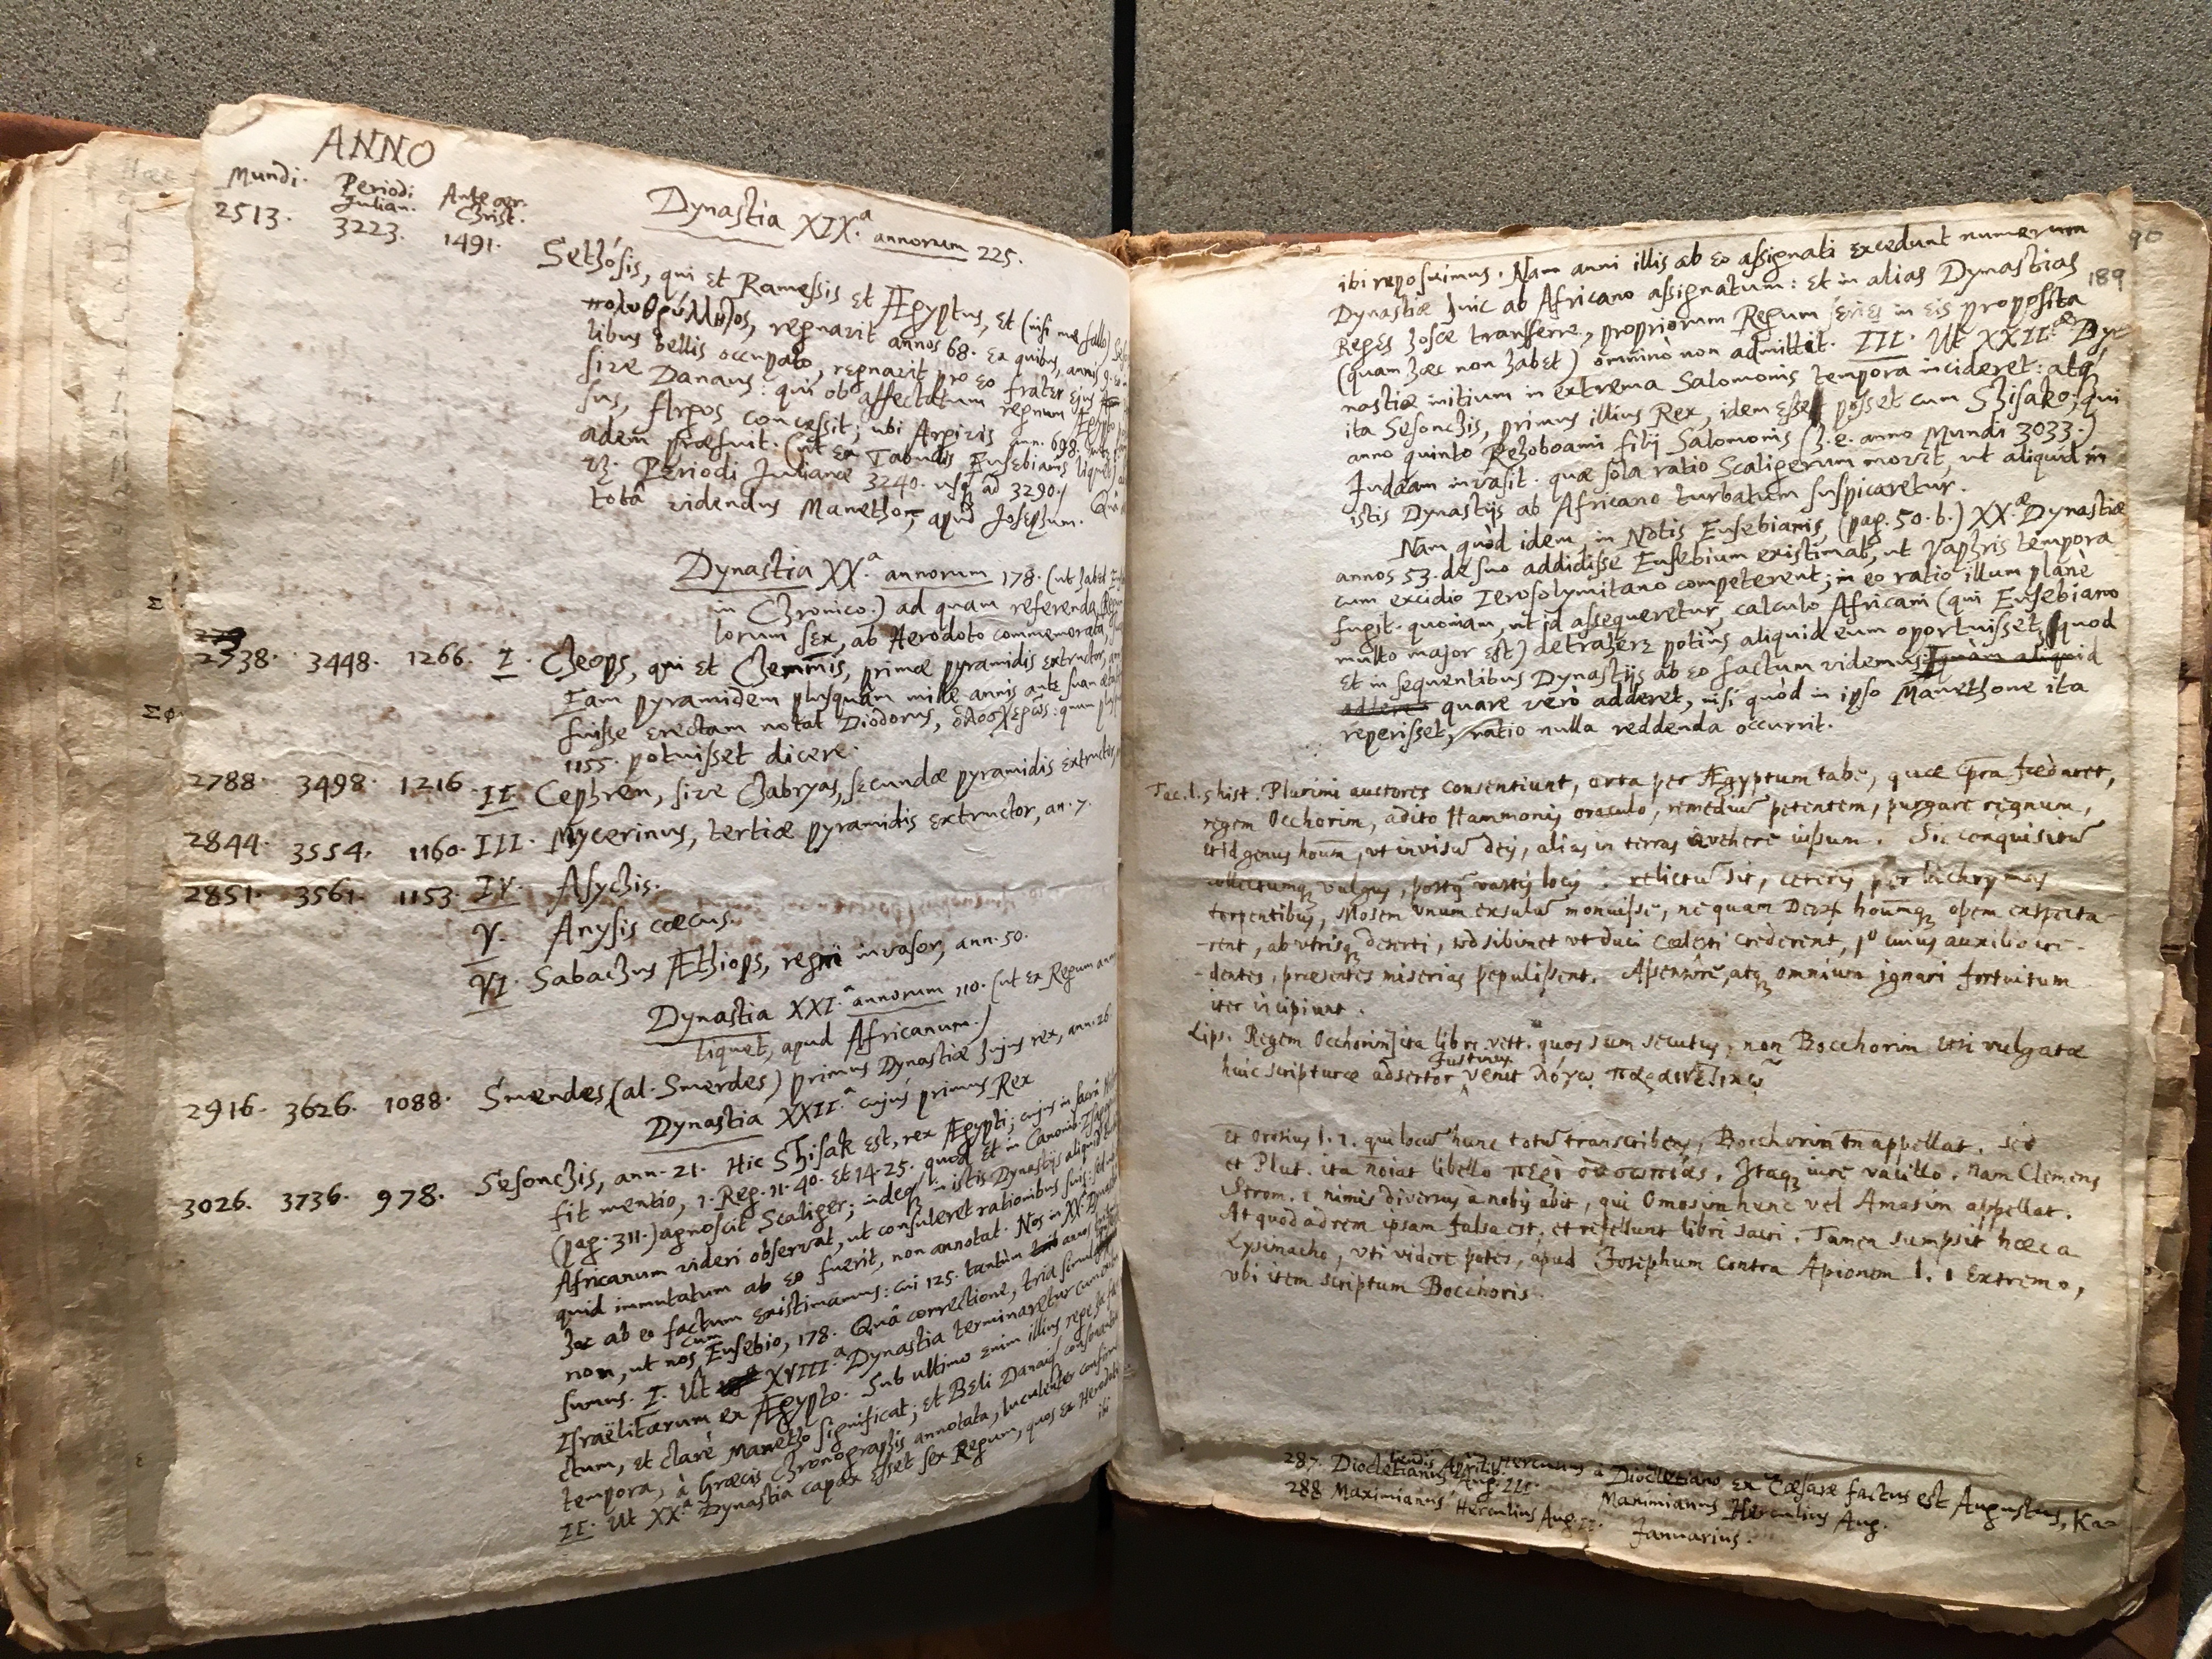 ANNO
Mundi. Periodi Julian. Ante ær. Christ.
2513. 3223. 1491.
Dynastia XIX.ª annorum 225.
Sethósis, qui et Ramessis et Ægyptus, et (nisi me fallo)
πολυθρύλλητος, regnavit annos 68. Ex quibus, annis 9.
libus bellis occupato, regnavit pro eo frater ejus
sive Danaus: qui ob affectatum regnum Ægypto
sus, Argos concessit; ubi Argivis ann. 698.
adem præfuit. (ut ex Tabulis Eusebianis liquet)
Periodi Julianæ 3240. usq; ad 3290.)
totâ videndus Manetho, apud Josephum. Quâ
Dynastia XX.ª annorum 178. (ut habet
in Chronico.) ad quam referenda
lorum sex, ab Herodoto commemorata,
2738. 3448. 1266. I. Cheops, qui et Chemmis, primæ pyramidis extructor,
Eam pyramidem plusquàm mille annis ante suam
fuisse erectam notat Diodorus, ὁλοσχερῶς: quum
1155. potuisset dicere.
2788. 3498. 1216. II. Cephren, sive Chabryas, secundæ pyramidis extructor,
2844. 3554. 1160. III. Mycerinus, tertiæ pyramidis extructor, an. 7.
2851. 3561. 1153. IV. Asychis.
V. Anysis cæcus.
VI. Sabachus Æthiops, regni invasor, ann. 50.
Dynastia XXI.ª annorum 110. (ut ex Regum
liquet, apud Africanum.)
2916. 3626. 1088. Smendes (al. Smerdes) primus Dynastiæ hujus rex, ann. 26.
Dynastia XXII.ª cujus primus Rex
3026. 3736. 978. Sesonchis, ann. 21. Hic Shisak est, rex Ægypti; cujus in sacrâ
fit mentio, 1. Reg. 11. 40. et 14. 25. quod et in Canonib. Isagog.
(pag. 311.) agnoscit Scaliger; indeq; in istis Dynastijs aliquid
Africanum videri observat, ut consuleret rationibus suis: sed
quid immutatum ab eo fuerit, non annotat. Nos in XX.
hoc ab eo factum existimamus: cui 125. tantùm annos
non, ut nos cum Eusebio, 178. Quâ correctione, tria simul
sumus. I. Ut XVIII.ª Dynastia terminaretur cum
Israëlitarum ex Ægypto. Sub ultimo enim illius rege
ctum, et clarè Manetho significat; et Beli Danaiq;
tempora, à Græcis Chronographis annotata, luculenter
II. Ut XX.ª Dynastia capax esset sex Regum, quos ex Herodoto
ibi
90
189
ibi reposuimus. Nam anni illis ab eo assignati excedunt numerum
Dynastiæ huic ab Africano assignatum: et in alias Dynastias
Reges hosce transferre, propriorum Regum series in eis proposita
(quam hæc non habet) omninò non admittit. III. Ut XXII.æ Dy-
nastiæ initium in extrema Salomonis tempora incideret: atq;
ita Sesonchis, primus illius Rex, idem esse posset cum Shisako; qui
anno quinto Rehoboami filij Salomonis (h. e. anno Mundi 3033.)
Judæam invasit. quæ sola ratio Scaligerum movit, ut aliquid in
istis Dynastijs ab Africano turbatum suspicaretur.
Nam quòd idem, in Notis Eusebianis, (pag. 50. b.) XX.æ Dynastiæ
annos 53. de suo addidisse Eusebium existimat, ut Vaphris tempora
cum excidio Ierosolymitano competerent; in eo ratio illum planè
fugit. quoniam, ut id assequeretur, calculo Africani (qui Eusebiano
multo major est) detrahere potiùs aliquid eum oportuisset, quod
et in sequentibus Dynastijs ab eo factum videmus, quàm aliquid
addere quare verò adderet, nisi quòd in ipso Manethone ita
reperisset, ratio nulla reddenda occurrit.
Tac. l. 5 hist. Plurimi auctores consentiunt, orta per Ægyptum tabe, quæ corpora fœdaret,
regem Occhorim, adito Hammonis oraculo, remediū petentem, purgare regnum,
et id genus hoūm, ut invisū deis, alias in terras avehere iussum. Sic conquisitū
collectumq; vulgus, postq̄ vastis locis relictū sit, ceteris per lachrymas
torpentibus, Mosem unum exsulū monuisse, ne quam Deor hoūmq; opem exspecta-
-rent, ab utrisq; deserti, sed sibimet ut duci cœlesti crederent, p° cuius auxilio cre-
-dentes, præsentes miserias pepulissent. Assensere, atq; omnium ignari fortuitum
iter īcipiunt.
Lips. Regem Occhorim] ita libri vett. quos sum secutus, non Bocchorim etsi vulgatæ
huic scripturæ adsertor Justinus venit λόγῳ παραινετικῷ
et Orosius l. 1. qui locū hunc totū transcribens, Bocchorim tn̄ appellat. sed
et Plut. ita noīat libello περὶ δυσωπίας. Itaq; iure vacillo. Nam Clemens
Strom. 1 nimis diversus a nobis abit, qui Omosim hunc vel Amasim appellat.
At quod ad rem ipsam falsa est, et refellunt libri sacri. Tamen sumpsit hæc a
Lysimacho, uti videre potes, apud Josephum contra Apionem l. 1 extremo,
ubi item scriptum Bocchoris.
287. Diocletianus Aug. III. Herculius à Diocletiano ex Cæsare factus est Augustus, Ka-
lendis Aprilis.
288 Maximianus Herculius Aug. II. Maximianus Herculius Aug.
Januarius.